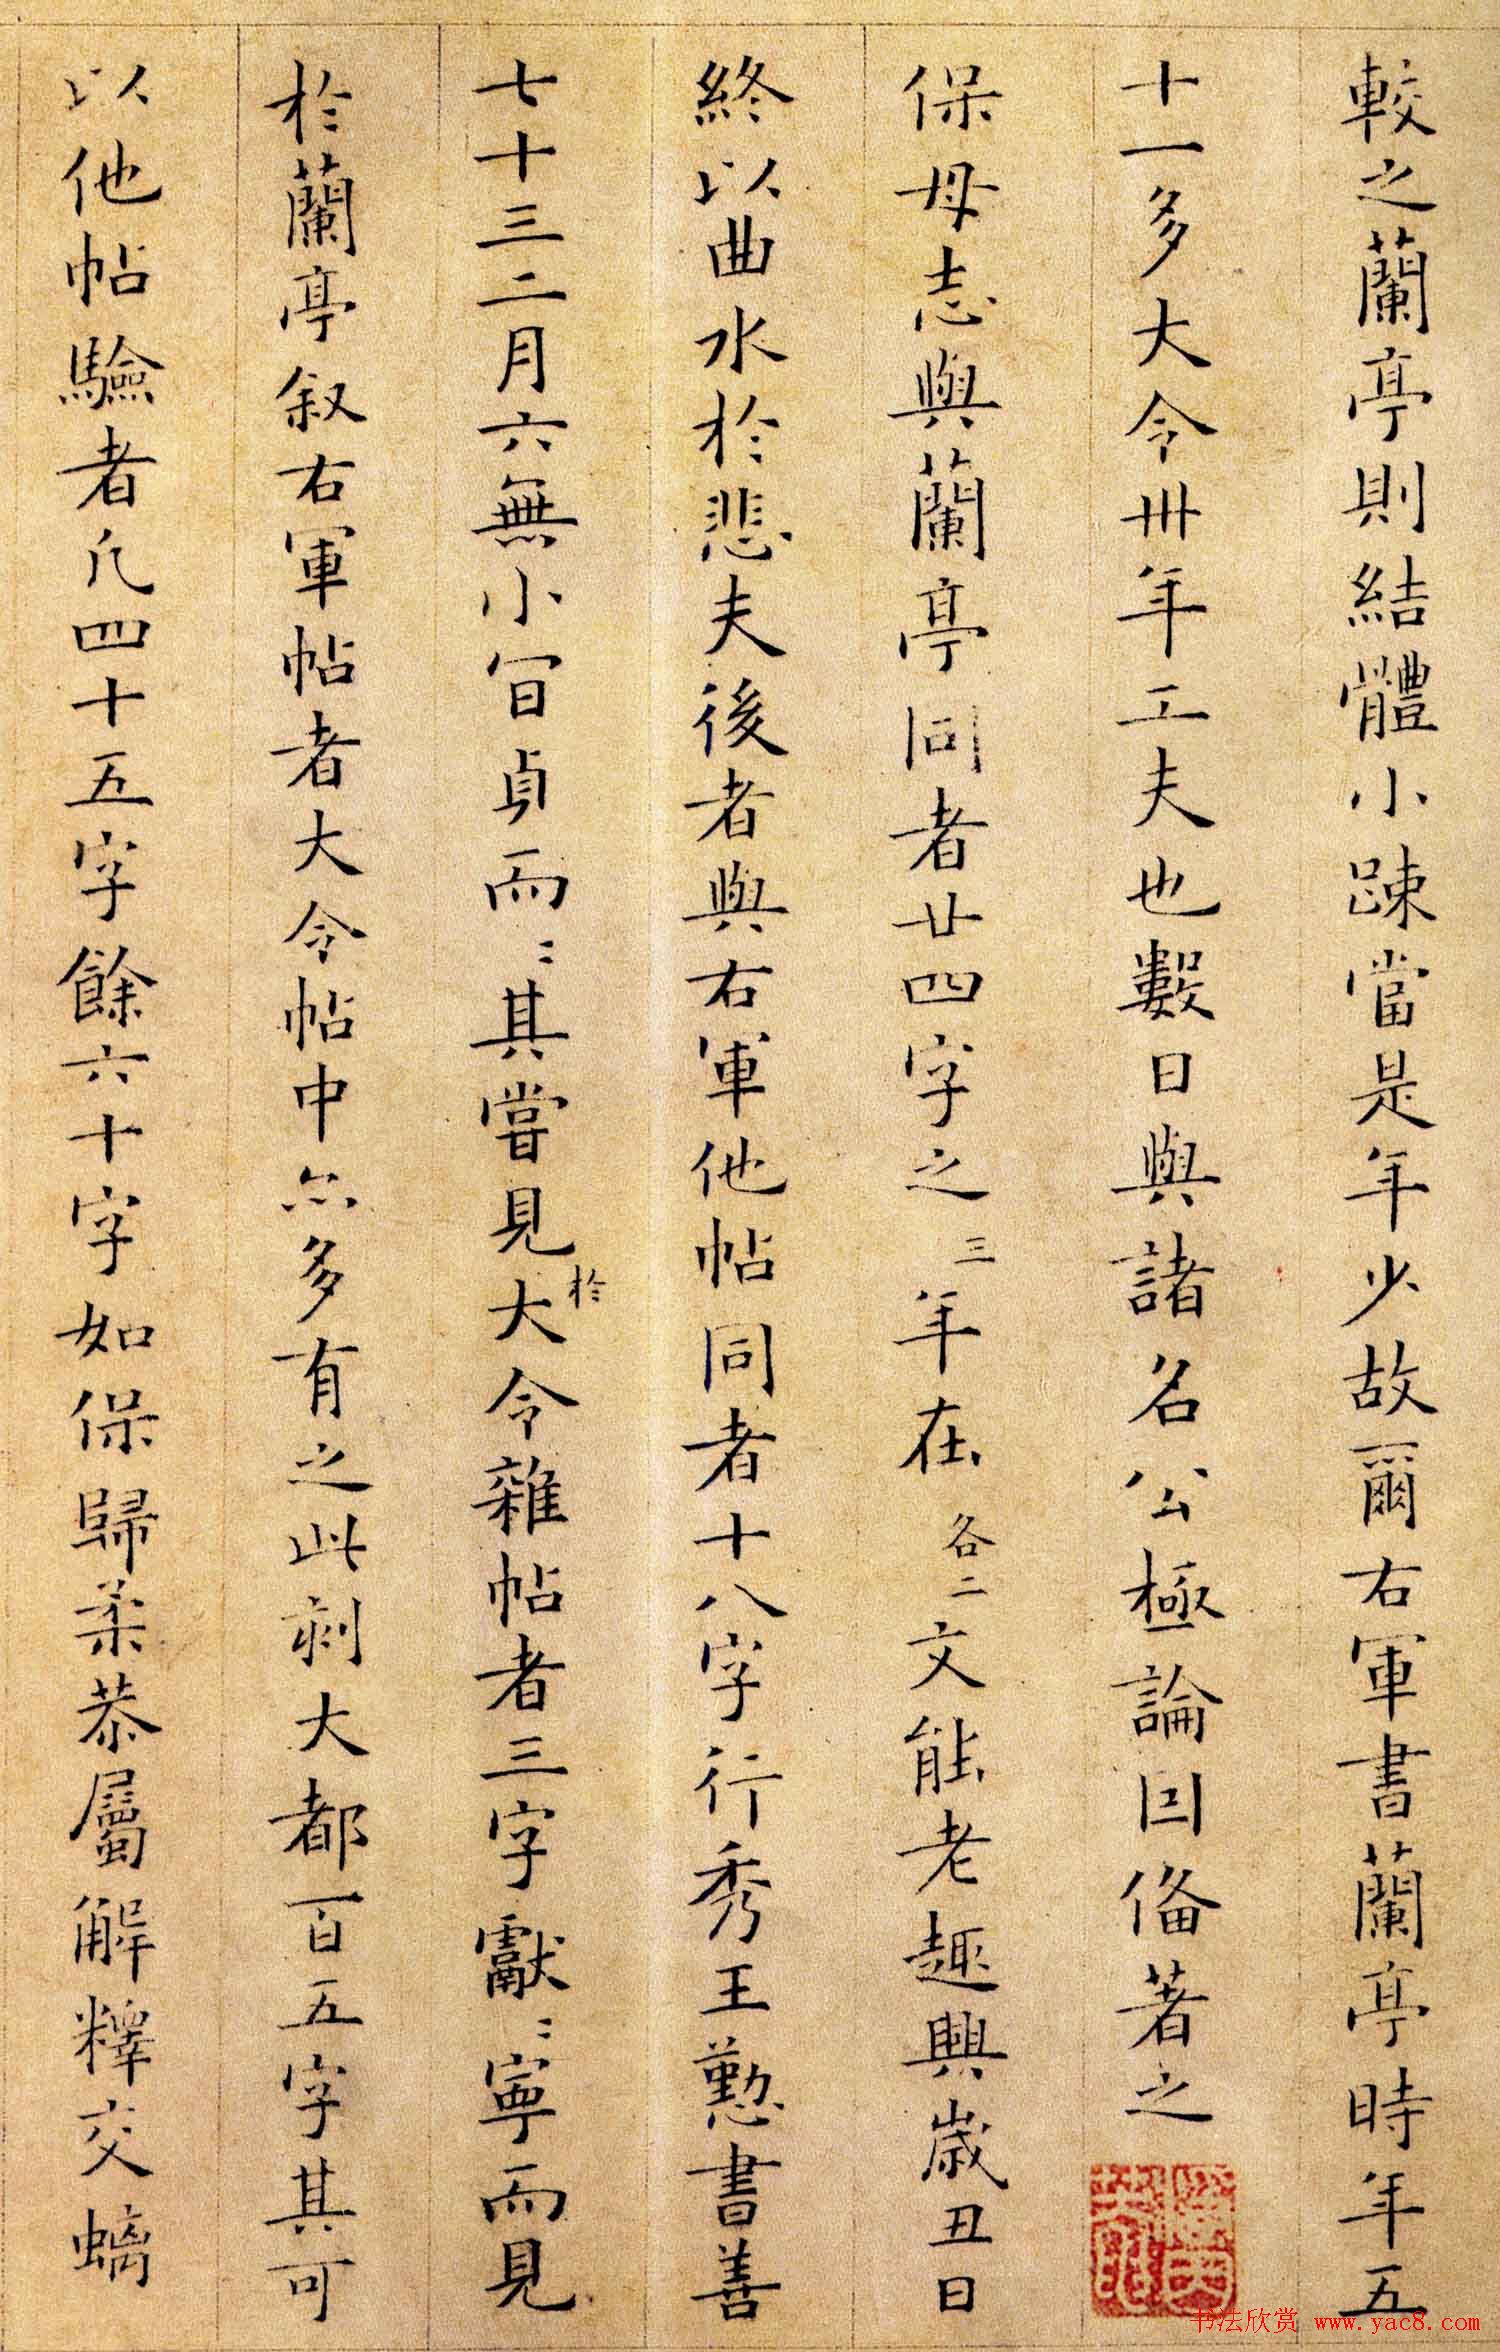 較之蘭亭則結體小踈當是年少故爾右軍書蘭亭時年五
十一多大令卅年工夫也數日與諸名公極論囙俻著之
保母志與蘭亭同者廿四字之三年在各二文能老趣興歲丑日
終以曲水於悲夫後者與右軍他帖同者十八字行秀王懃書善
七十三二月六無小冝貞而〻其嘗見於大令雜帖者三字獻〻寧而見
於蘭亭叙右軍帖者大令帖中亦多有之此刻大都百五字其可
以他帖驗者凡四十五字餘六十字如保歸柔恭屬解釋交螭
书法欣赏 www.yac8.com